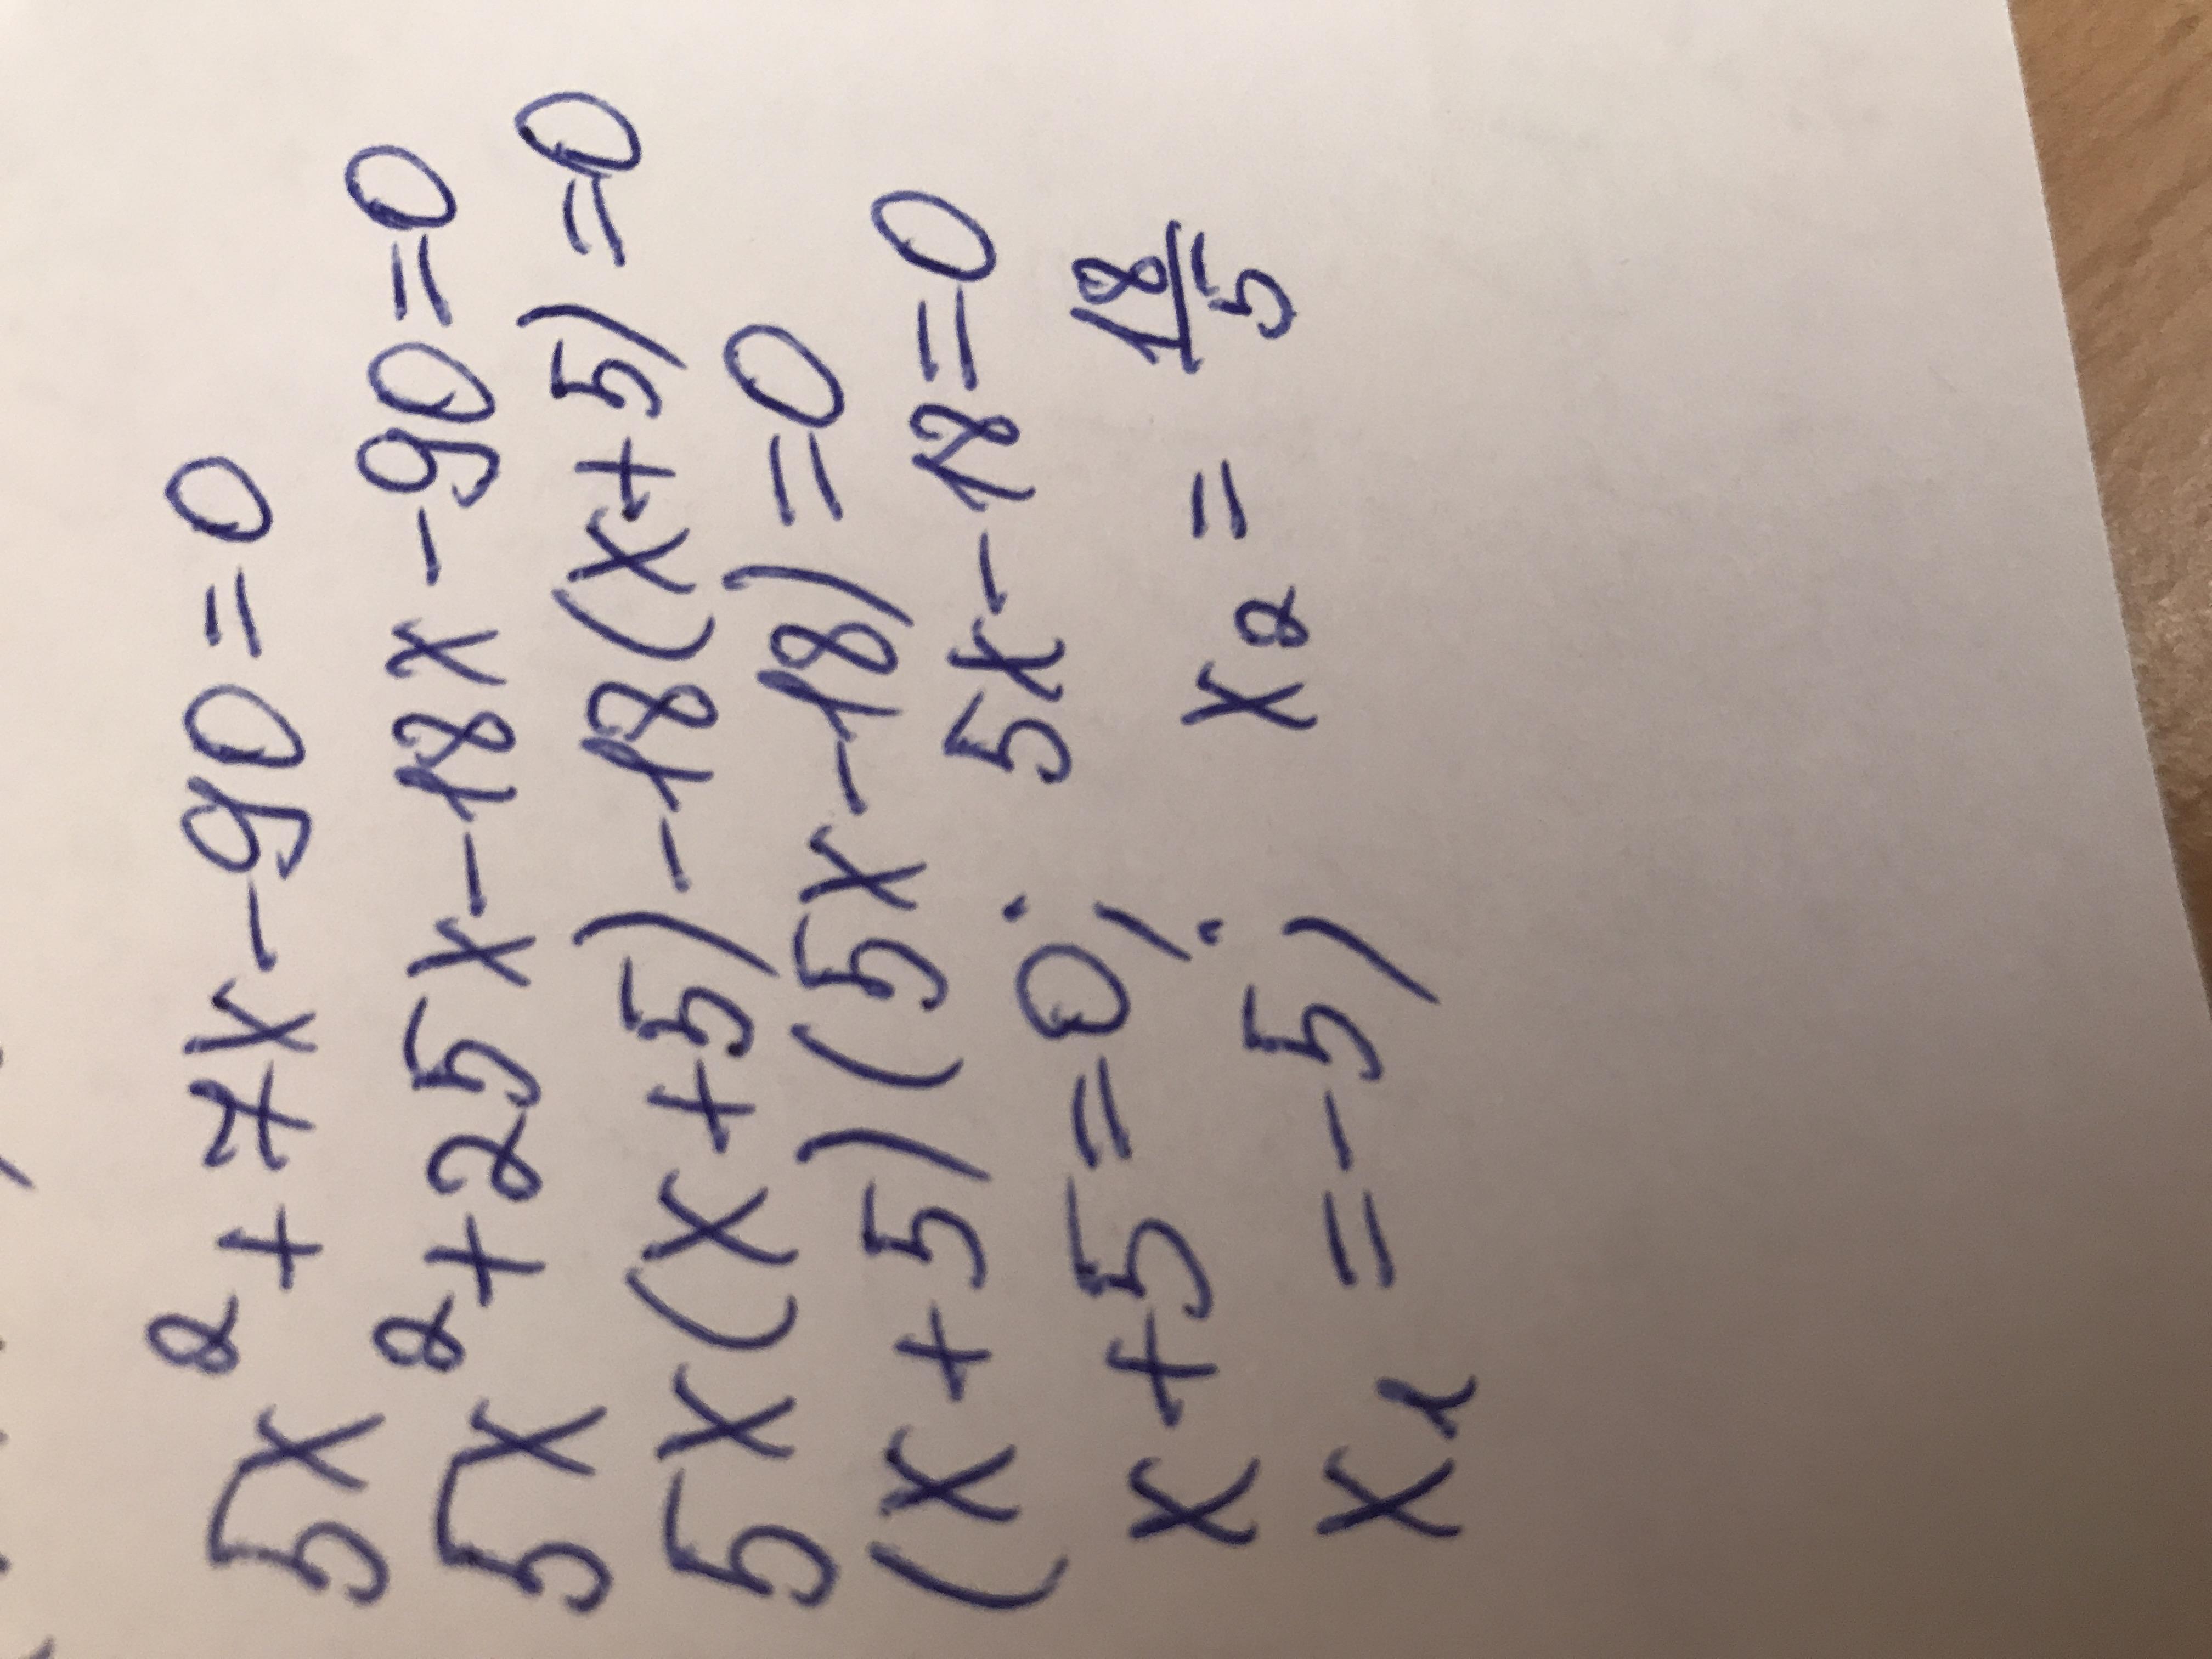 5x² + 7x - 90 = 0
5x² + 25x - 18x - 90 = 0
5x(x + 5) - 18(x + 5) = 0
(x + 5)(5x - 18) = 0
x + 5 = 0; 5x - 18 = 0
x₁ = -5; x₂ = 18/5